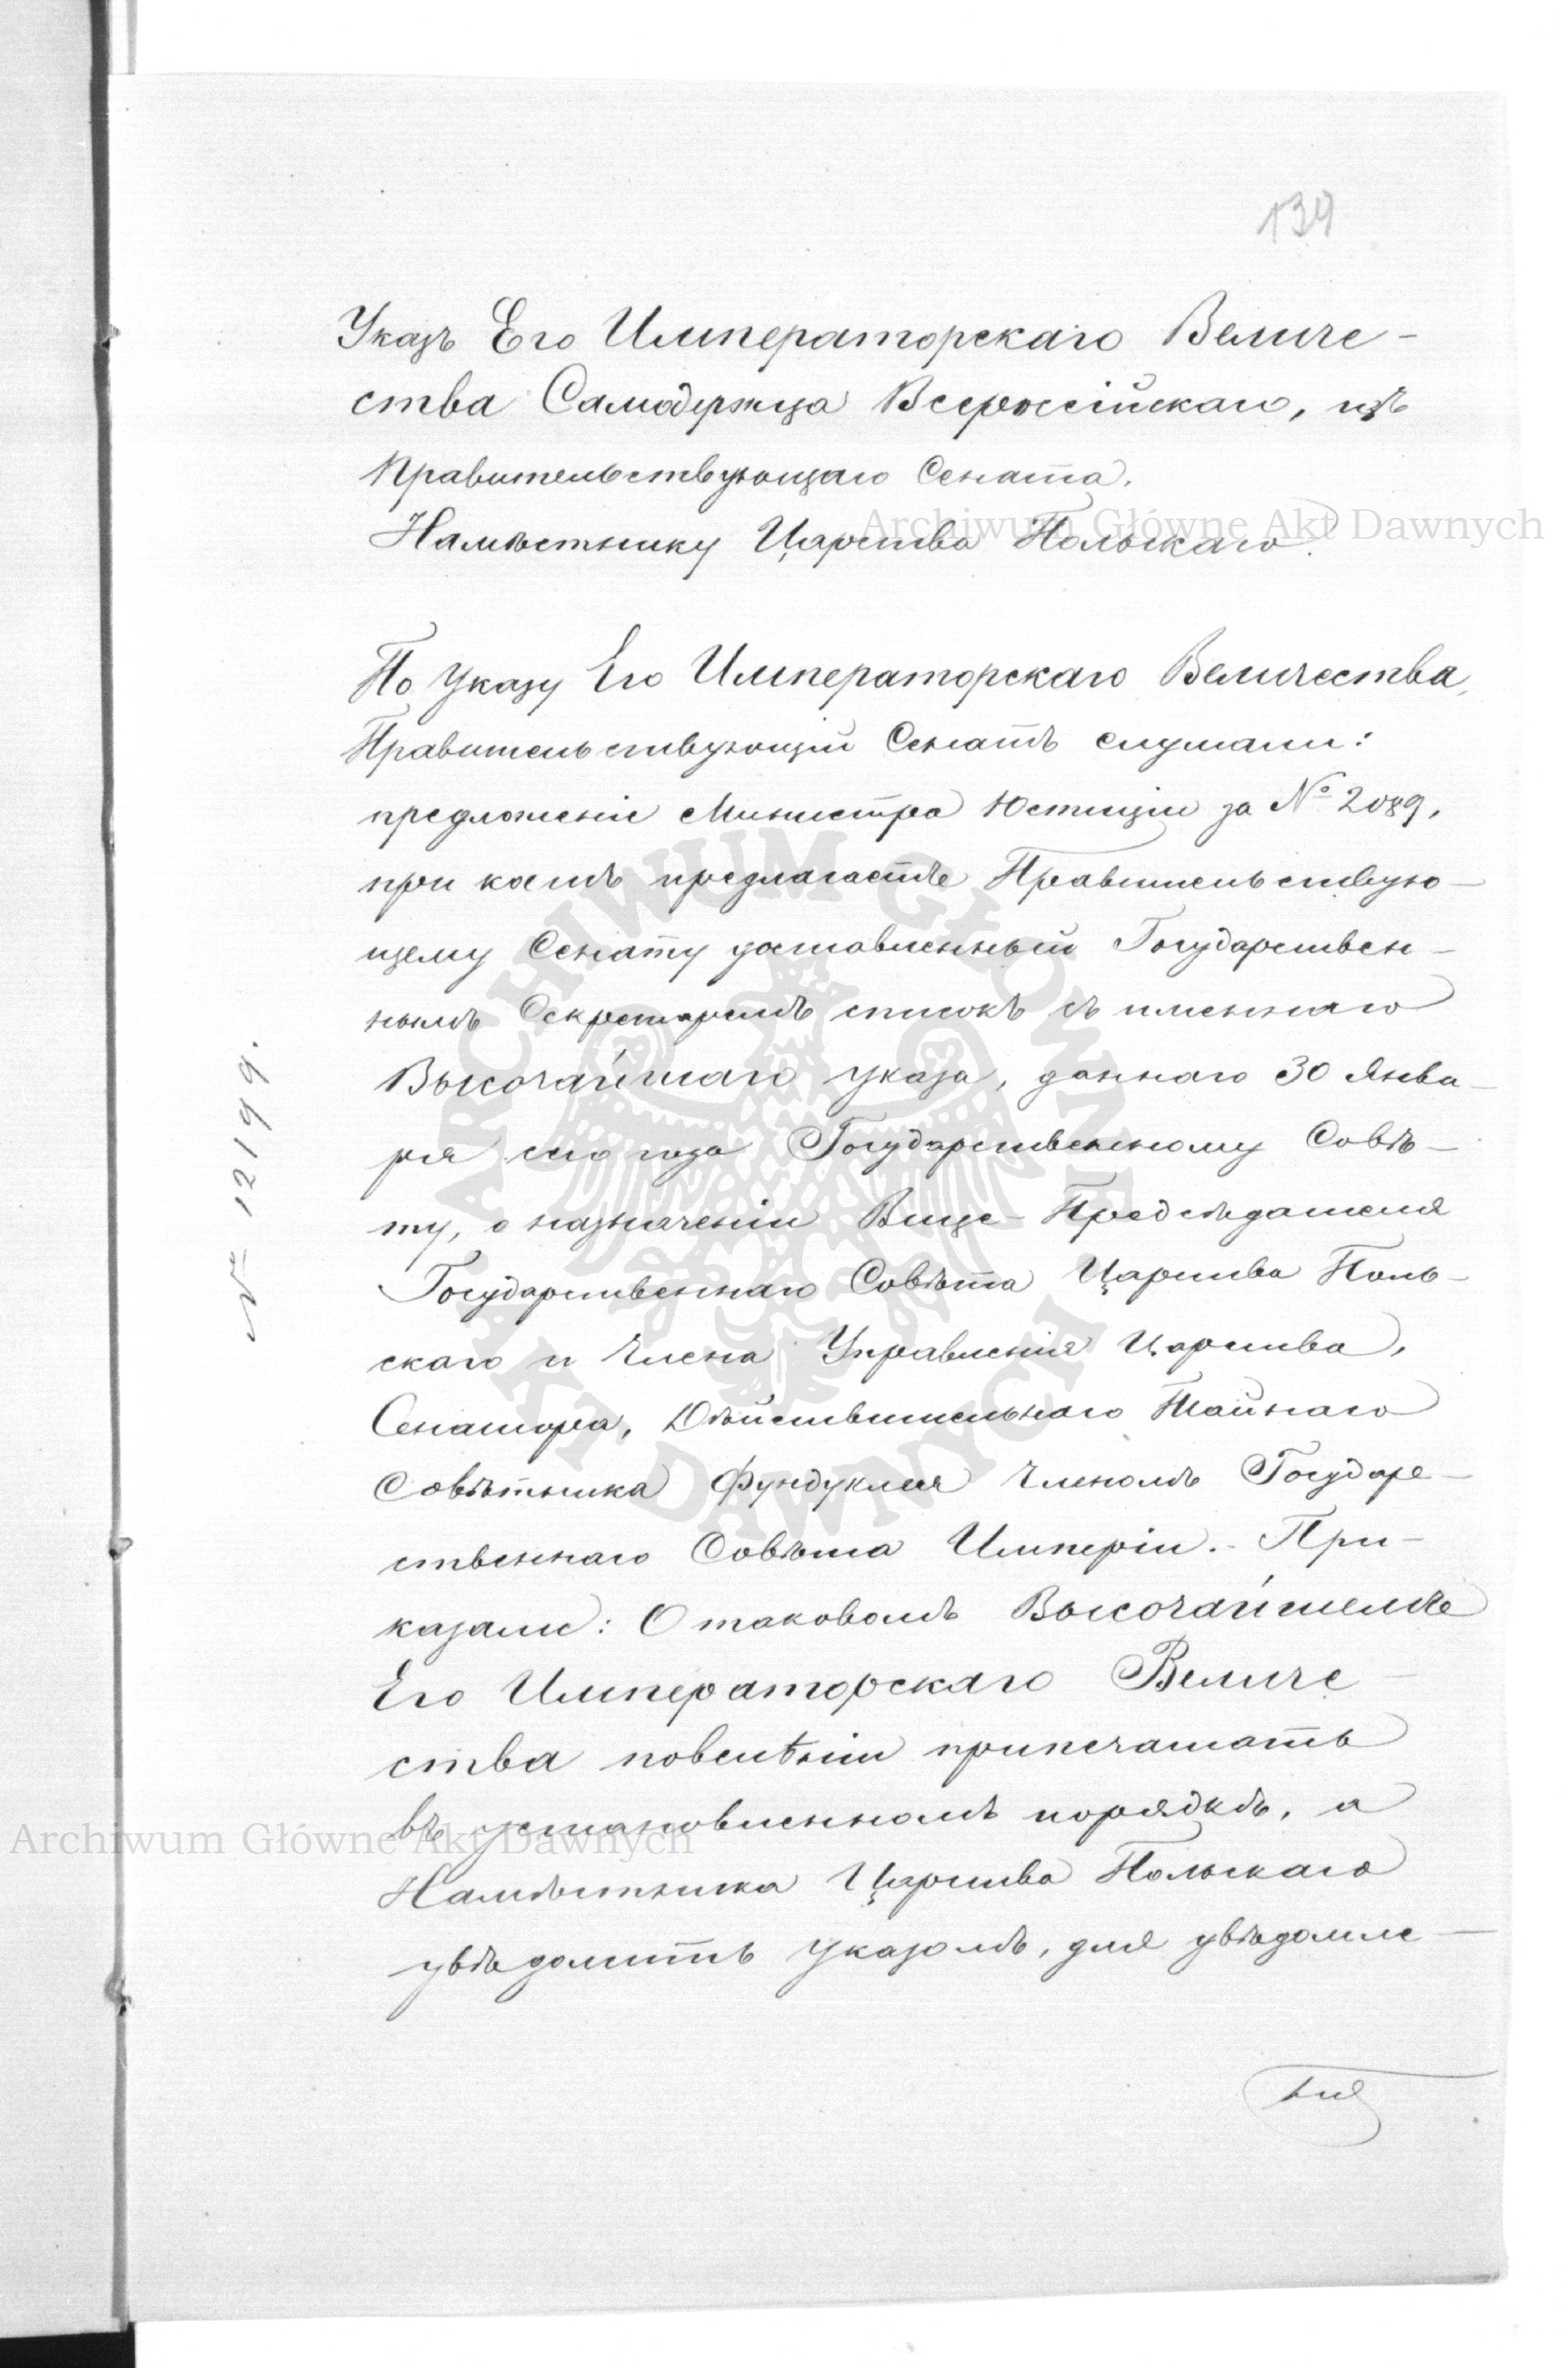 139
Указъ Его Императорскаго Величе-
ства Самодержца Всероссійскаго, изъ
Правительствующаго Сената.
Намѣстнику Царства Польскаго.
По Указу Его Императорскаго Величества,
Правительствующій Сенатъ слушали:
предложеніе Министра Юстиціи за № 2089,
при коемъ предлагаетъ Правительствую-
щему Сенату доставленный Государствен-
нымъ Секретаремъ списокъ съ именнаго
Высочайшаго указа, даннаго 30 Янва-
ря сего года Государственному Совѣ-
ту, о назначеніи Вице-Предсѣдателя
Государственнаго Совѣта Царства Поль-
скаго и Члена Управленія Царства,
Сенатора, Дѣйствительнаго Тайнаго
Совѣтника Фундуклея Членомъ Государ-
ственнаго Совѣта Имперіи.- При-
казали: О таковомъ Высочайшемъ
Его Императорскаго Величе-
ства повелѣніи припечатать
въ установленномъ порядкѣ, а
Намѣстника Царства Польскаго
увѣдомить указомъ, для увѣдомле-
нія
№ 12199.
Archiwum Główne Akt Dawnych
Archiwum Główne Akt Dawnych
ARCHIWUM GŁÓWNE
AKT DAWNYCH